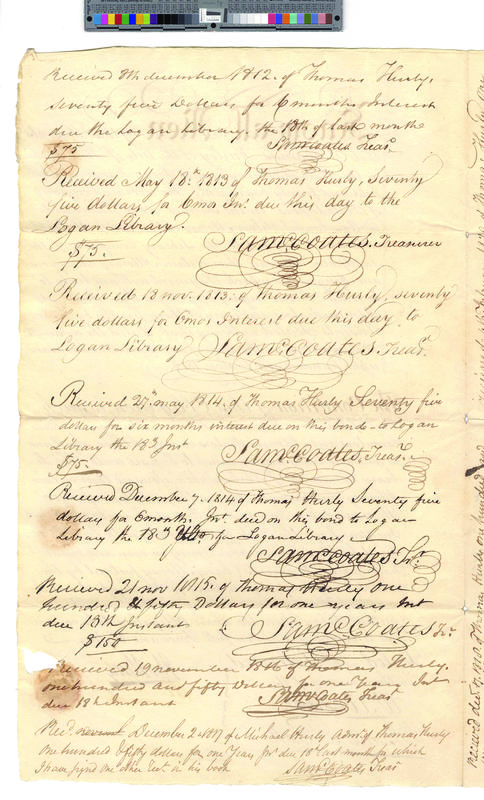 Received 8th december 1812. of Thomas Hurly,
seventy five Dollars for 6 months Interest
due the Logan Library. the 18th of last month
$75 Saml Coates Treasr
Received May 18th 1813 of Thomas Hurly, Seventy
five dollars for 6 mos Int. due this day to the
Logan Library.
$75. Saml Coates. Treasurer
Received 18 nov. 1813. of Thomas Hurly, seventy
five dollars for 6 mos Interest due this day to
Logan Library Saml Coates. Treasr.
Received 27th may 1814. of Thomas Hurly Seventy five
dollars for six months interest due on this bond to Logan
Library the 18th Inst
$75. Saml Coates. Treasr.
Received December 7. 1814 of Thomas Hurly Seventy five
dollars for 6 months. Int. due on this bond to Logan
Library the 18th for Logan Library
Saml Coates Tr.
Received 21 nov 1815. of Thomas Hurly one
hundred & fifty Dollars for one years Int
due 18th Instant
$150 Saml Coates Tr.
Received 19 november 1816 of Thomas Hurly.
one hundred and fifty Dollars for one Years Int
due 18th Instant Saml Coates Treasr
Recd. December 2 1817 of Michael Hurly admr. of Thomas Hurly
one hundred & fifty dollars for one Years Int due 18th last month for which
I have signd one other Rect. in his book
Saml Coates Treasr